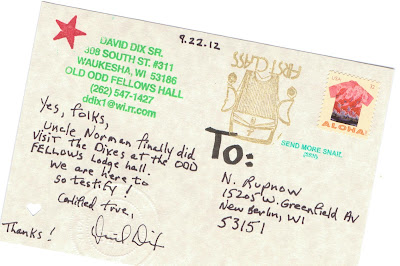 9.22.12
DAVID DIX SR.
308 SOUTH ST. #311
WAUKESHA, WI 53186
OLD ODD FELLOWS HALL
(262) 547-1427
ddix1@wi.rr.com
FIRST CLASS
USA
ALOHA!
SEND MORE SNAIL
Yes, folks,
Uncle Norman finally did
visit the Dixes at the ODD
FELLOWS Lodge hall.
We are here to
so testify!
Certified true,
David Dix
Thanks!
To:
N. Rupnow
15205 W. Greenfield Av
New Berlin, WI
53151